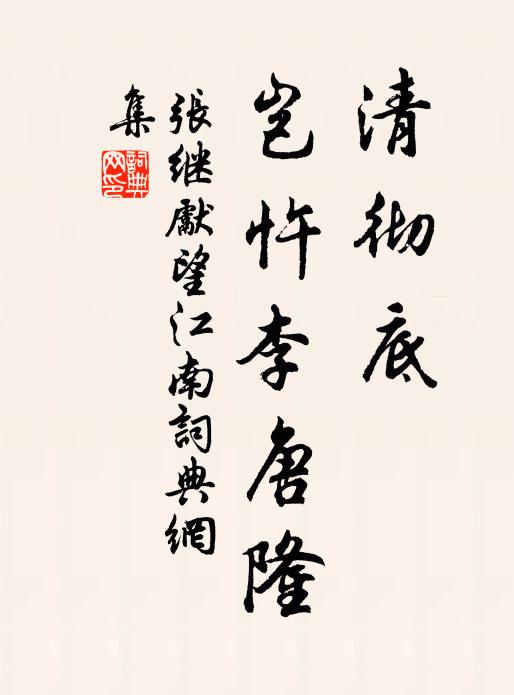 清彻底
岂忤李唐隆
張继獻望江南詞典網
集
詞典
网印